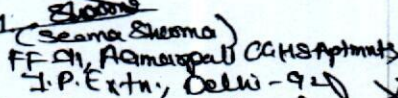 1.
(Seema Sharma)
FF-91, Aamarpali CGHS Aptmnts
I.P. Extn., Delhi-92